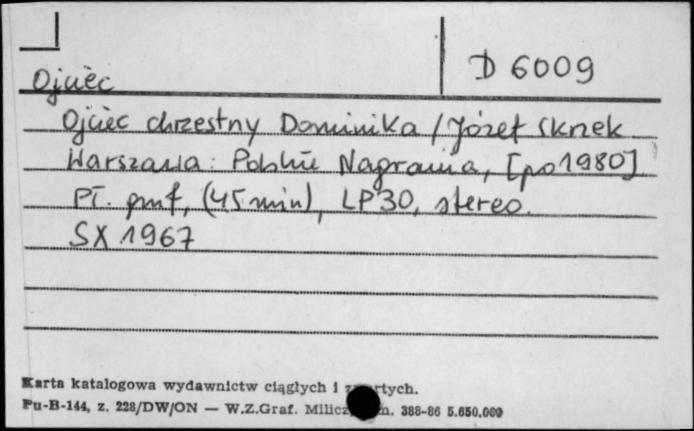 D 6009
Ojciec
Ojciec chrzestny Dominika / Józef Skrzek
Warszawa: Polskie Nagrania, [po 1980]
Pł. gmf, (45 min), LP 30, stereo.
SX 1967
Karta katalogowa wydawnictw ciągłych i
Pu-B-144, z. 228/DW/ON — W.Z.Graf. 388-86 5.650.000